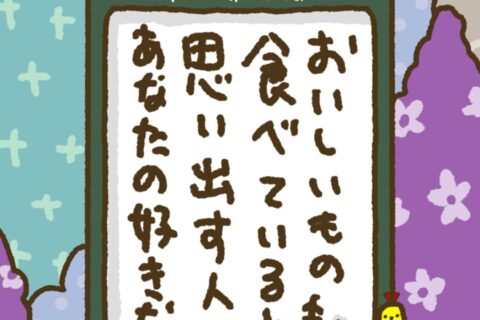 おいしいものを
食べていると
思い出す人
あなたの好きな